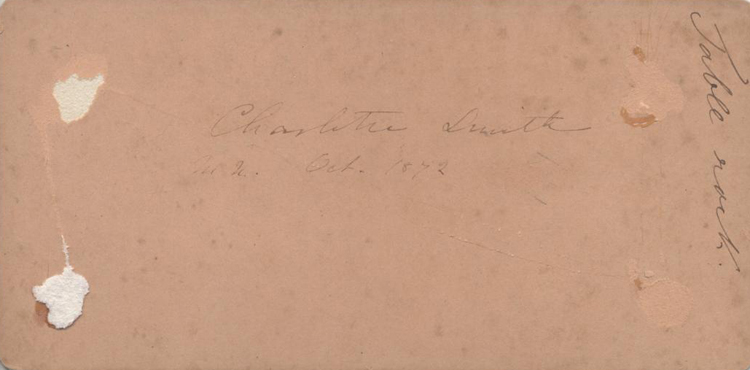 Charlotte Smith
Oct. 1872
Table rock.